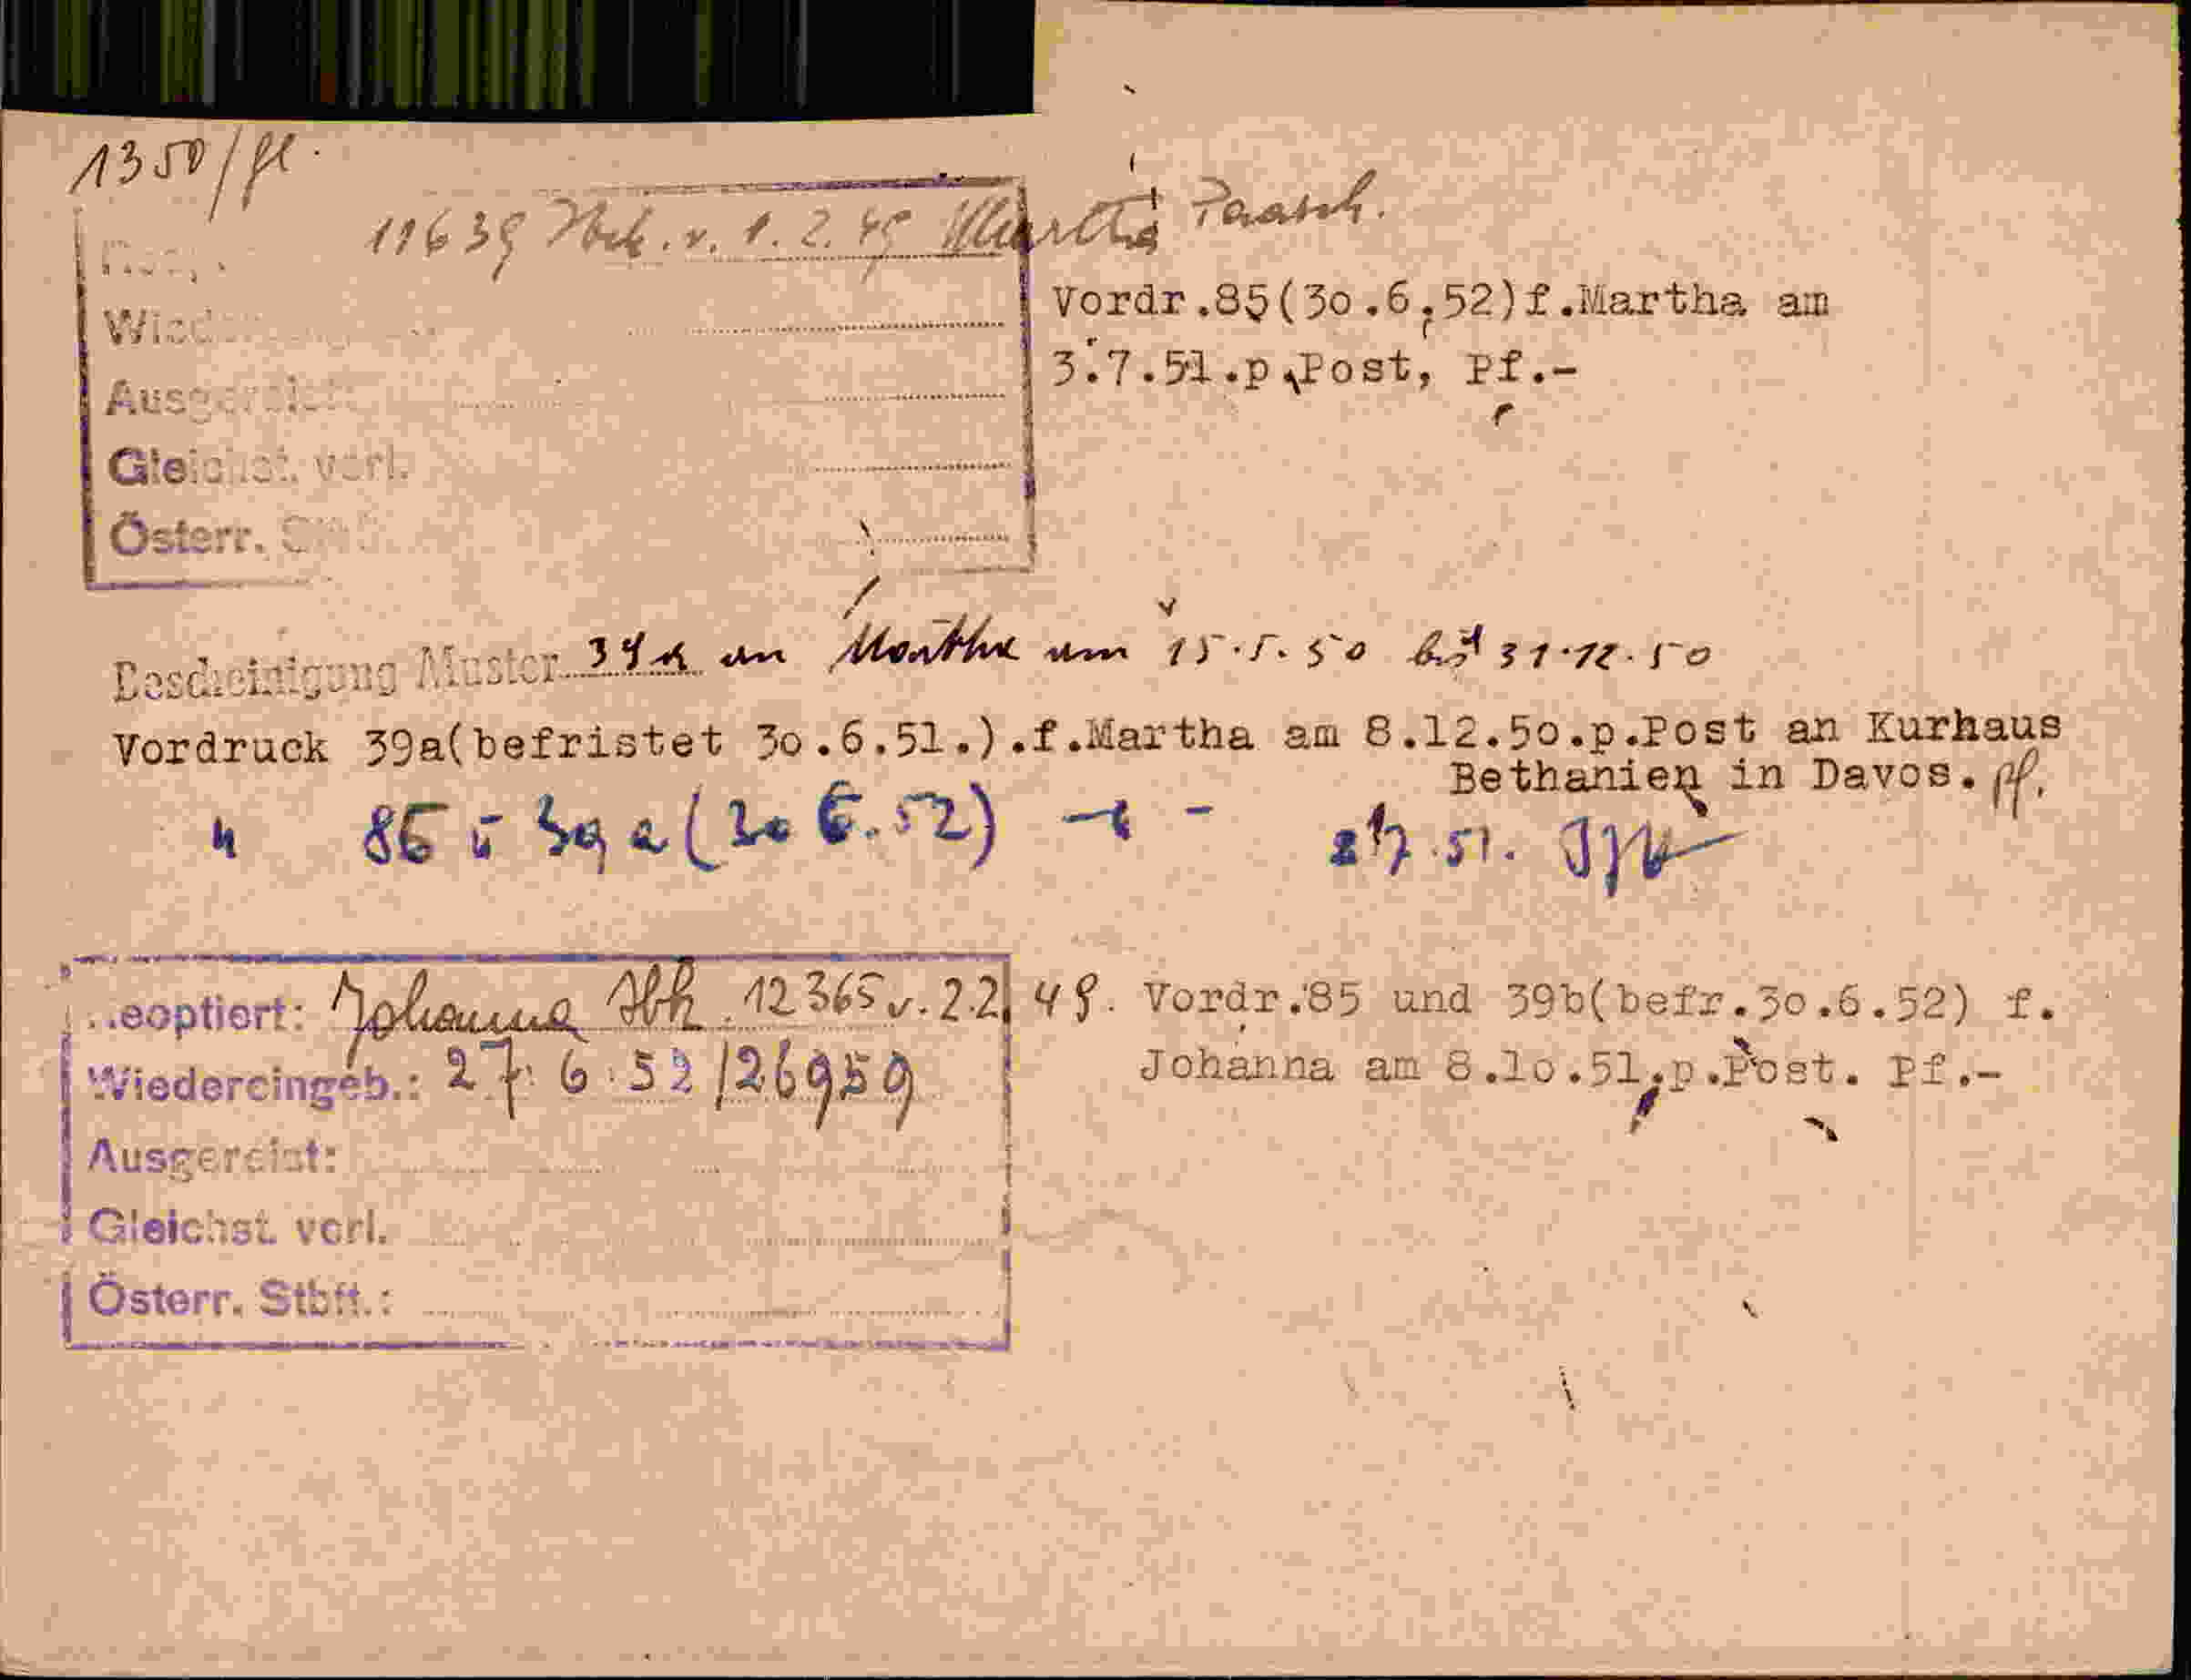 1350/gl.
11639 Abk. v. 1. 2. 49 Martha Paasch.
Vordr.85(30.6.52)f.Martha am
3.7.51.p.Post, Pf.-
Ausgereist:
Gleichst. verl.
Österr.
Bescheinigung Muster 39a an Martha am 15.5.50 bis 31.12.50
Vordruck 39a(befristet 30.6.51.).f.Martha am 8.12.50.p.Post an Kurhaus
Bethanien in Davos. pf.
" 85 u 39a (30 6.52) 51.
..eoptiert: Johanna Abk. 12365 v. 2.2. 49. Vordr.85 und 39b(befr.30.6.52) f.
Wiedereingeb.: 27.6.52/26959 Johanna am 8.10.51.p.Post. Pf.-
Ausgereist:
Gleichst. verl.
Österr. Stbft.: